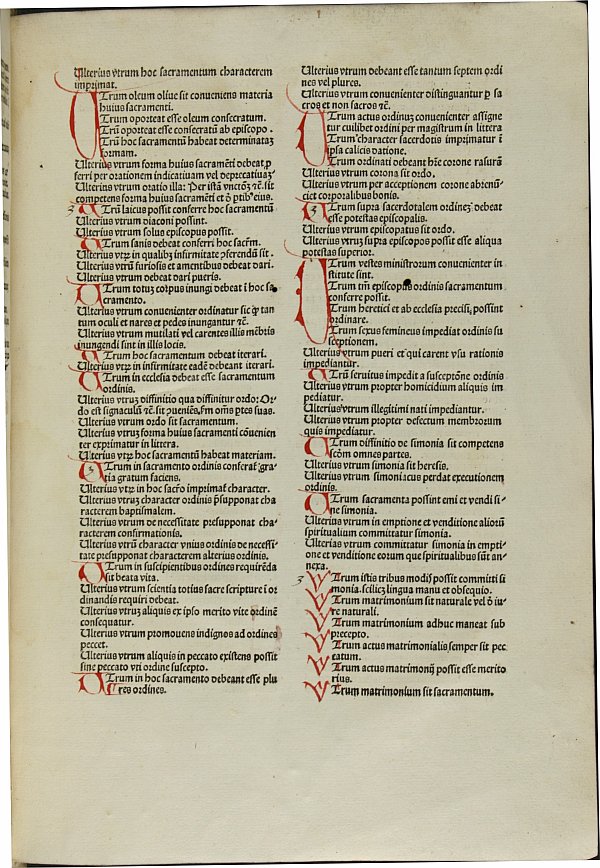 Ulterius vtrum hoc sacramentum characterem
imprimat.
UTrum oleum oliue sit conueniens materia
huius sacramenti.
Trum oporteat esse oleum consecratum.
Trũ oporteat esse consecratũ ab episcopo.
Trũ hoc sacramentũ habeat determinataꝫ
formam.
Ulterius vtrum forma huius sacramẽti debeat ꝓ
ferri per orationem indicatiuam vel deprecatiuaꝫ
Ulterius vtrum oratio illa: Per istã vnctoꝫ ⁊č. sit
competens forma huius sacramẽti et
3 UTrũ laicus possit conferre hoc sacramentũ
Ulterius vtrum diaconi possint.
Ulterius vtrum solus episcopus possit.
UTrum sanis debeat conferri hoc sacr̃m.
Ulterius vtrꝫ in qualibꝫ infirmitate ꝯferendũ sit.
Ulterius vtrũ furiosis et amentibus debeat dari.
Ulterius vtrum debeat dari pueris.
UTrum totuꝫ corpus inungi debeat ĩ hoc sa
cramento.
Ulterius vtrum conuenienter ordinatur sic ꝙ tan
tum oculi et nares et pedes inungantur ⁊č.
Ulterius vtrum mutilati vel carentes illis mẽbris
inungendi sint in illis locis.
UTrum hoc sacramentum debeat iterari.
Ulterius vtrꝫ in infirmitate eadẽ debeant iterari.
UTrum in ecclesia debeat esse sacramentum
ordinis.
Ulterius vtrꝫ diffinitio qua diffinitur ordo: Or-
do est signaculũ ⁊č. sit ꝯueniẽs, fm̃ om̃s ptes suas.
Ulterius vtrum ordo sit sacramentum.
Ulterius vtruꝫ forma huius sacramenti cõuenien
ter exprimatur in littera.
Ulterius vtrꝫ hoc sacramentũ habeat materiam.
3 UTrum in sacramento ordinis conferat̃ gra-
tia gratum faciens.
Ulterius vtrꝫ in hoc sacr̃o imprimat̃ character.
Ulterius vtruꝫ character ordinis p̃supponat cha
racterem baptismalem.
Ulterius vtrum de necessitate presupponat cha-
racterem confirmationis.
Ulterius vtrũ character vnius ordinis de necessi-
tate presupponat characterem alterius ordinis.
UTrum in suscipientibus ordines requirẽda
sit beata vita.
Ulterius vtrum scientia totius sacre scripture ĩ or
dinandis requiri debeat.
Ulterius vtruꝫ aliquis ex ipso merito vite ordinẽ
consequatur.
Ulterius vtrum promouens indignos ad ordines
peccet.
Ulterius vtrum aliquis in peccato existens possit
sine peccato vti ordine suscepto.
UTrum in hoc sacramento debeant esse plu
res ordines.
Ulterius vtrum debeant esse tantum septem ordi
nes vel plures.
Ulterius vtrum conuenienter distinguantur ꝑ sa
cros et non sacros ⁊č.
UTrum actus ordinuꝫ conuenienter assigne
tur cuilibet ordini per magistrum in littera
Trum character sacerdotis imprimatur ĩ
ipsa calicis datione.
Trum ordinati debeant hr̃e corone rasurã
Ulterius vtrum corona sit ordo.
Ulterius vtrum per acceptionem corone abrenũ-
ciet corporalibus bonis.
3 UTrum supra sacerdotalem ordineꝫ debeat
esse potestas episcopalis.
Ulterius vtrum episcopatus sit ordo.
Ulterius vtruꝫ supra episcopos possit esse aliqua
potestas superior.
UTrum vestes ministrorum conuenienter in
stitute sint.
Trum tm̃ episcopus ordinis sacramentum
conferre possit.
Trum heretici et ab ecclesia precisi, possint
ordinare.
Trum sexus femineus impediat ordinis su
sceptionem.
Ulterius vtrum pueri et qui carent vsu rationis
impediantur.
UTrũ seruitus impedit a susceptõne ordinis
Ulterius vtrum propter homicidium aliquis im
pediatur.
Ulterius vtrum illegitimi nati impediantur.
Ulterius vtrum propter defectum membrorum
quis impediatur.
UTrum diffinitio de simonia sit competens
scðm omnes partes.
Ulterius vtrum simonia sit heresis.
Ulterius vtrum simoniacus perdat executionem
ordinis.
UTrum sacramenta possint emi et vendi si-
ne simonia.
Ulterius vtrum in emptione et venditione aliorũ
spiritualium committatur simonia.
Ulterius vtrum committatur simonia in empti-
one et venditione eorum que spiritualibus sũt an-
nexa.
3 VTrum istis tribus modis possit committi si
monia. scilicꝫ lingua manu et obsequio.
VTrum matrimonium sit naturale vel õ iu-
re naturali.
VTrum matrimonium adhuc maneat sub
precepto.
VTrum actus matrimonialis semper sit pec
catum.
VTrum actus matrimonij possit esse merito
rius.
VTrum matrimonium sit sacramentum.